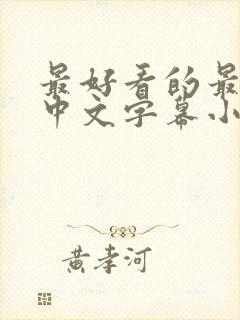 最好看的最
中文字幕小
黄孝河